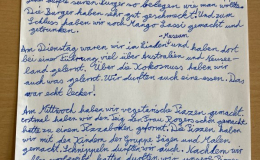 Burger belegen wie man wollte.
Die Burger haben sehr gut geschmeckt. Und zum
Schluss haben wir noch Mango Lassi gemacht und
getrunken.
- Museum
Am Dienstag waren wir in Linden und haben dort
bei einer Führung viel über Australien und Neusee-
land gelernt. Über die Kokosnuss haben wir
auch was gelernt. Wir durften auch eine essen. Das
war echt lecker.
Am Mittwoch haben wir vegetarische Pizzen gemacht.
erstmal haben wir den Teig der Frau Rogers schon gemacht
hatte zu einen Pizzaboden geformt. Die Pizzen haben
wir mit den Kindern der Gruppe Sägen und Malen
gemacht. Schnippeln durften wir auch. Nachdem wir